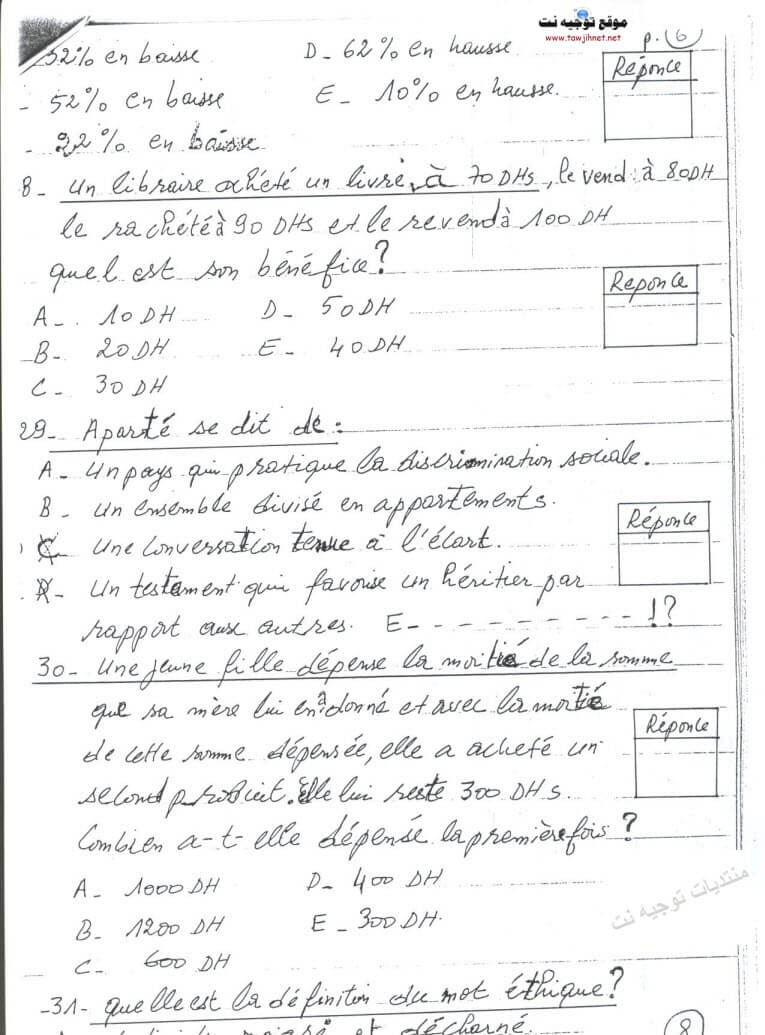 موقع توجيه نت
www.tawjihnet.net
p. 6
52% en baisse D- 62% en hausse
- 52% en baisse E- 10% en hausse.
- 22% en baisse
Réponce
8- Un libraire achété un livre, à 70 DHs, le vend à 80DH
le rachété à 90 DHs et le revend à 100 DH
quel est son bénéfice?
Reponce
A- 10 DH D- 50 DH
B- 20 DH E- 40 DH
C- 30 DH
29- Aparté se dit de :
A- Un pays qui pratique la discrimination sociale.
B- Un ensemble divisé en appartements.
Réponce
C- Une conversation tenue à l'écart.
D- Un testament qui favorise un héritier par
rapport aux autres. E- - - - - - - - - - !?
30- Une jeune fille dépense la moitié de la somme
que sa mère lui en a donné et avec la moitié
Réponce
de cette somme dépensée, elle a acheté un
second produit. Elle lui reste 300 DHs.
Combien a-t-elle dépensé la première fois ?
A- 1000 DH D- 400 DH
B- 1200 DH E- 300 DH.
C- 600 DH
منتديات توجيه نت
-31- quelle est la définition du mot éthique?
et décharné.
8